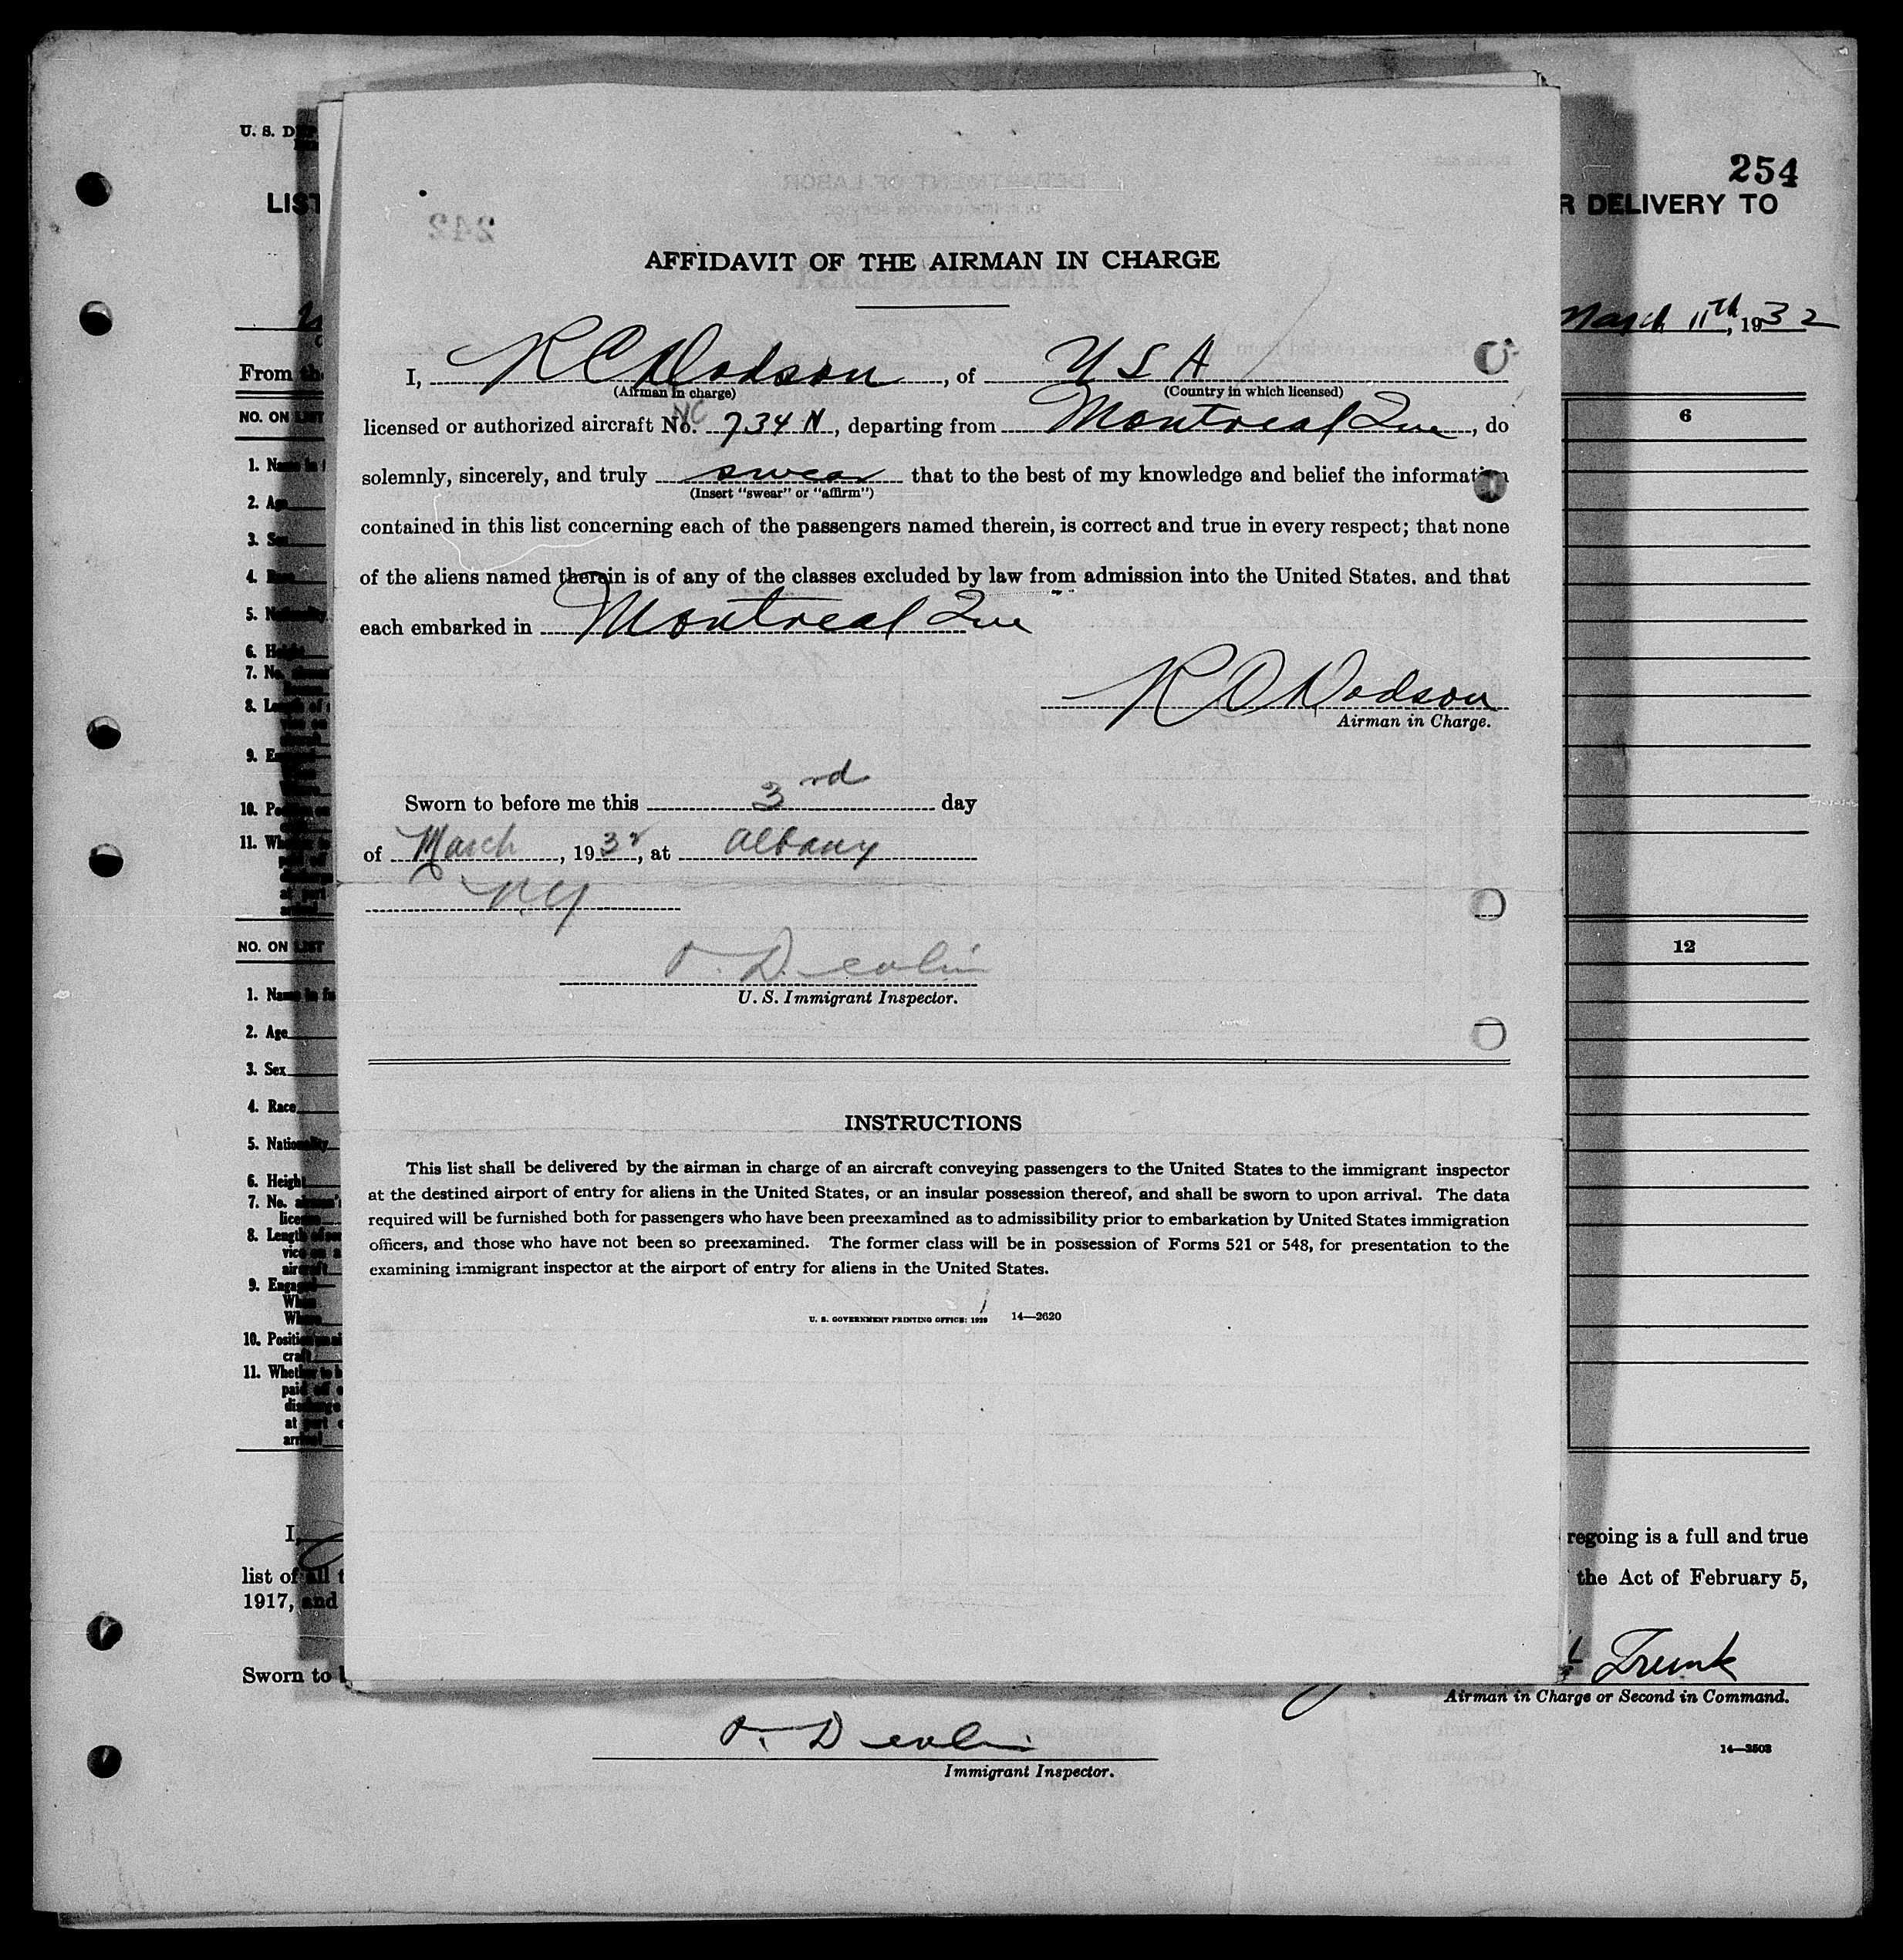 254
U. S. DEP
LIST
R DELIVERY TO
March 11th, 1932
From the
NO. ON LIST
6
1. Name in f
2. Age
3. Sex
4. Race
5. Nationality
6. He
7. No.
8. Length of
9. En
10. Po
11. Wh
NO. ON LIST
12
1. Name in fu
2. Age
3. Sex
4. Race
5. Nationality
6. Height
7. No. airman's
license
8. Length of ser
vice on a
aircraft
9. Engaged
When
Where
10. Position on ai
craft
11. Whether to b
paid off o
discharge
at port o
arrival
I,
regoing is a full and true
list of all t
the Act of February 5,
1917, and
Trunk
Sworn to b
Airman in Charge or Second in Command.
O. Devlin
Immigrant Inspector.
14—2503
242
DEPARTMENT OF LABOR
AFFIDAVIT OF THE AIRMAN IN CHARGE
I, R C Dodson, of U S A
(Airman in charge) (Country in which licensed)
licensed or authorized aircraft No. NC 734 N, departing from Montreal Que, do
solemnly, sincerely, and truly swear that to the best of my knowledge and belief the information
(Insert "swear" or "affirm")
contained in this list concerning each of the passengers named therein, is correct and true in every respect; that none
of the aliens named therein is of any of the classes excluded by law from admission into the United States. and that
each embarked in Montreal Que
R C Dodson
Airman in Charge.
Sworn to before me this 3rd day
of March, 1932, at Albany
N.Y
O. Devlin
U. S. Immigrant Inspector.
INSTRUCTIONS
This list shall be delivered by the airman in charge of an aircraft conveying passengers to the United States to the immigrant inspector
at the destined airport of entry for aliens in the United States, or an insular possession thereof, and shall be sworn to upon arrival. The data
required will be furnished both for passengers who have been preexamined as to admissibility prior to embarkation by United States immigration
officers, and those who have not been so preexamined. The former class will be in possession of Forms 521 or 548, for presentation to the
examining immigrant inspector at the airport of entry for aliens in the United States.
U. S. GOVERNMENT PRINTING OFFICE: 1929 14—2620